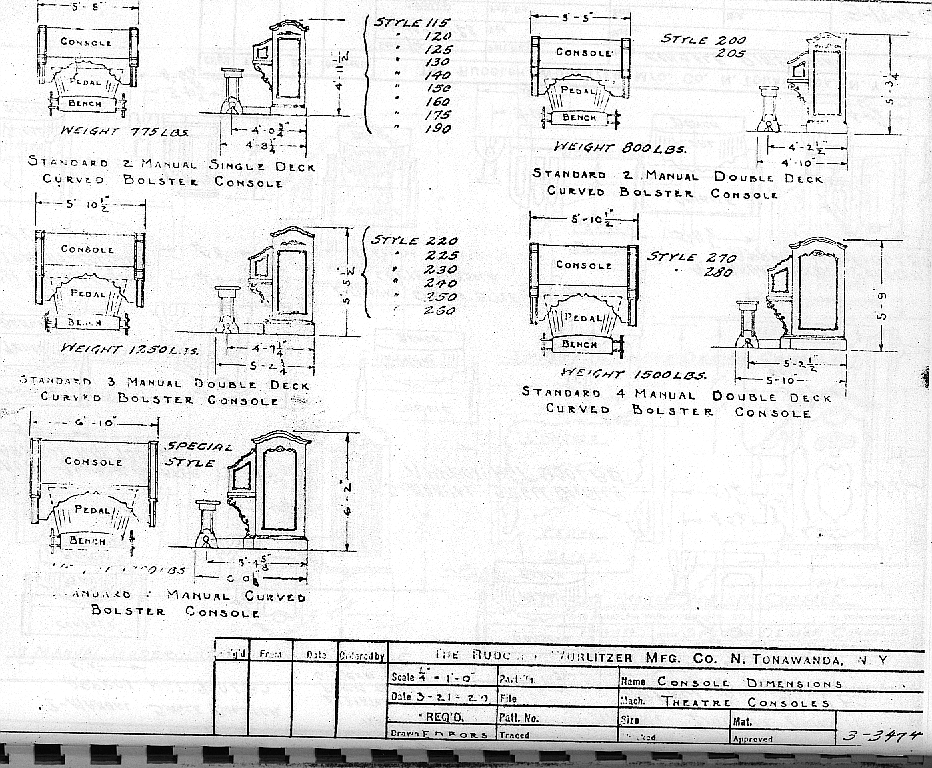 5'-5"
CONSOLE
PEDAL
BENCH
WEIGHT 775 LBS.
4'-11 1/2
4'-0 3/4"
4'-8 1/4"
STANDARD 2 MANUAL SINGLE DECK
CURVED BOLSTER CONSOLE
STYLE 115
" 120
" 125
" 130
" 140
" 150
" 160
" 175
" 190
5'-5"
CONSOLE
PEDAL
BENCH
WEIGHT 800 LBS.
STYLE 200
205
5'-3 3/4
4'-2 1/2"
4'-10"
STANDARD 2 MANUAL DOUBLE DECK
CURVED BOLSTER CONSOLE
5'10 1/2"
CONSOLE
PEDAL
BENCH
WEIGHT 1250 LBS.
4'-7 1/4"
5'-2 1/4"
STANDARD 3 MANUAL DOUBLE DECK
CURVED BOLSTER CONSOLE
STYLE 220
" 225
" 230
" 240
" 250
" 260
5'-10 1/2"
CONSOLE
PEDAL
BENCH
WEIGHT 1500 LBS.
STYLE 270
" 280
5'-9
5'-2 1/2"
5'-10"
STANDARD 4 MANUAL DOUBLE DECK
CURVED BOLSTER CONSOLE
6'-10"
CONSOLE
PEDAL
BENCH
SPECIAL
STYLE
6'-2"
LBS
STANDARD MANUAL CURVED
BOLSTER CONSOLE
From Date Ordered by
THE RUDOLPH WURLITZER MFG. CO. N. TONAWANDA, N.Y
Scale 1/4" = 1'-0" Name CONSOLE DIMENSIONS
Date 3-21-29 File Mach. THEATRE CONSOLES
REQ'D. Patt. No. Size Mat.
Drawn Traced Checked Approved 3-3474